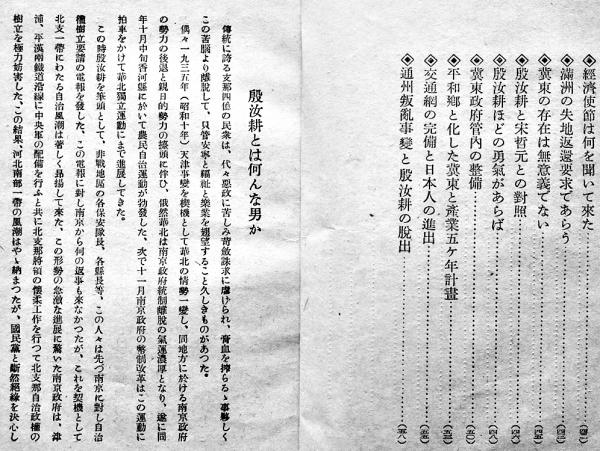 ◈經濟使節は何を聞いて來た
◈滿洲の失地返還要求であらう
◈冀東の存在は無意義でない
◈殷汝耕と宋哲元との對照
◈殷汝耕ほどの勇氣があらば
◈冀東政府管內の整備
◈平和鄉と化した冀東と產業五ケ年計畫
◈交通網の完備と日本人の進出
◈通州叛亂事變と殷汝耕の脫出…(五八)
殷汝耕とは何んな男か
傳統に誇る支那四億の民衆は、代々惡政に苦しみ苛斂誅求に虐げられ、膏血を搾らるゝ事移しく
この苦惱より離脫して、只管安寧と福祉と樂業を翹望すること久しきものがあつた。
偶々一九三五年(昭和十年)天津事變を楔機として華北の情勢一變し、同地方に於ける南京政府
の勢力の後退と親日的勢力の擡頭に伴ひ、俄然華北は南京政府統制離脫の氣運濃厚となり、遂に同
年十月中旬香河縣に於いて農民自治運動が勃發した、次で十一月南京政府の幣制改革はこの運動に
拍車をかけて華北獨立運動にまで進展してきた。
この時殷汝耕を筆頭として、非戰地區の各保安隊長、各縣長等、この人々は先づ南京に對し自治
權樹立要請の電報を發した。この電報に對し南京から何の返事も來なかつたが、これを契機として
北支一帶にわたる自治風潮は著しく昂揚して來た、この形勢の急激な進展に驚いた南京政府は、津
浦、平漢兩鐵道沿線に中央軍の配備を行ふと共に北支那將領の懷柔工作を行つて北支那自治政權の
樹立を極力妨害した、この結果、河北南部一帶の風潮はやゝ納まつたが、國民黨と斷然絕緣を決心し